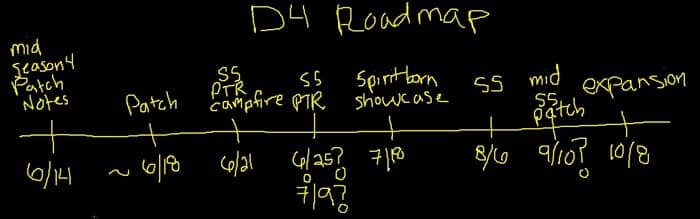 D4 Roadmap
mid
season4
Patch
Notes
Patch
S5
PTR
campfire
S5
PTR
Spiritborn
showcase
S5
mid
S5
patch
expansion
6/14
~ 6/18
6/21
6/25?
7/9?
7/18
8/6
9/10?
10/8